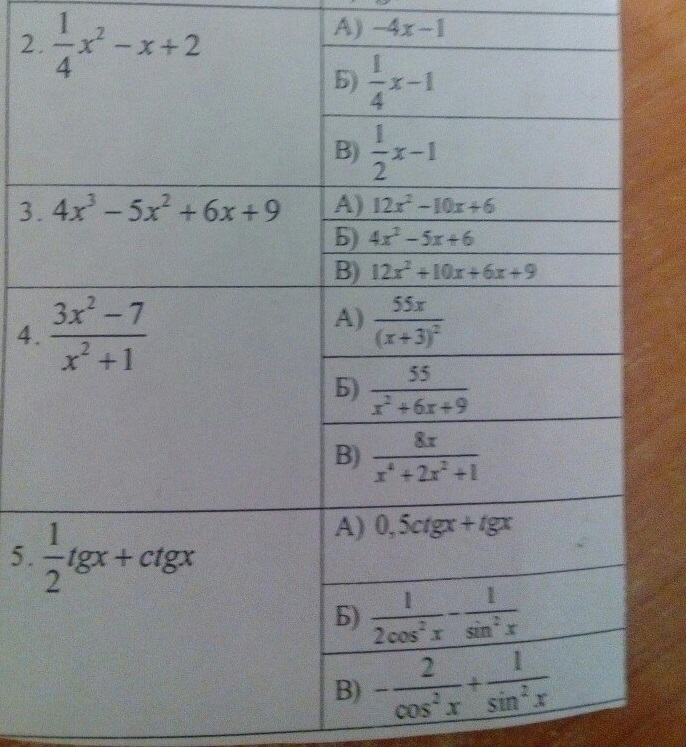 2. 1/4 x² − x + 2
А) −4x−1
Б) 1/4 x−1
В) 1/2 x−1
3. 4x³ − 5x² + 6x + 9
А) 12x² −10x+6
Б) 4x² −5x+6
В) 12x² +10x+6x+9
4. (3x² − 7)/(x² + 1)
А) 55x/(x+3)²
Б) 55/(x² +6x+9)
В) 8x/(x⁴ +2x² +1)
5. 1/2 tgx + ctgx
А) 0,5ctgx+tgx
Б) 1/(2cos² x) − 1/(sin² x)
В) − 2/(cos² x) + 1/(sin² x)